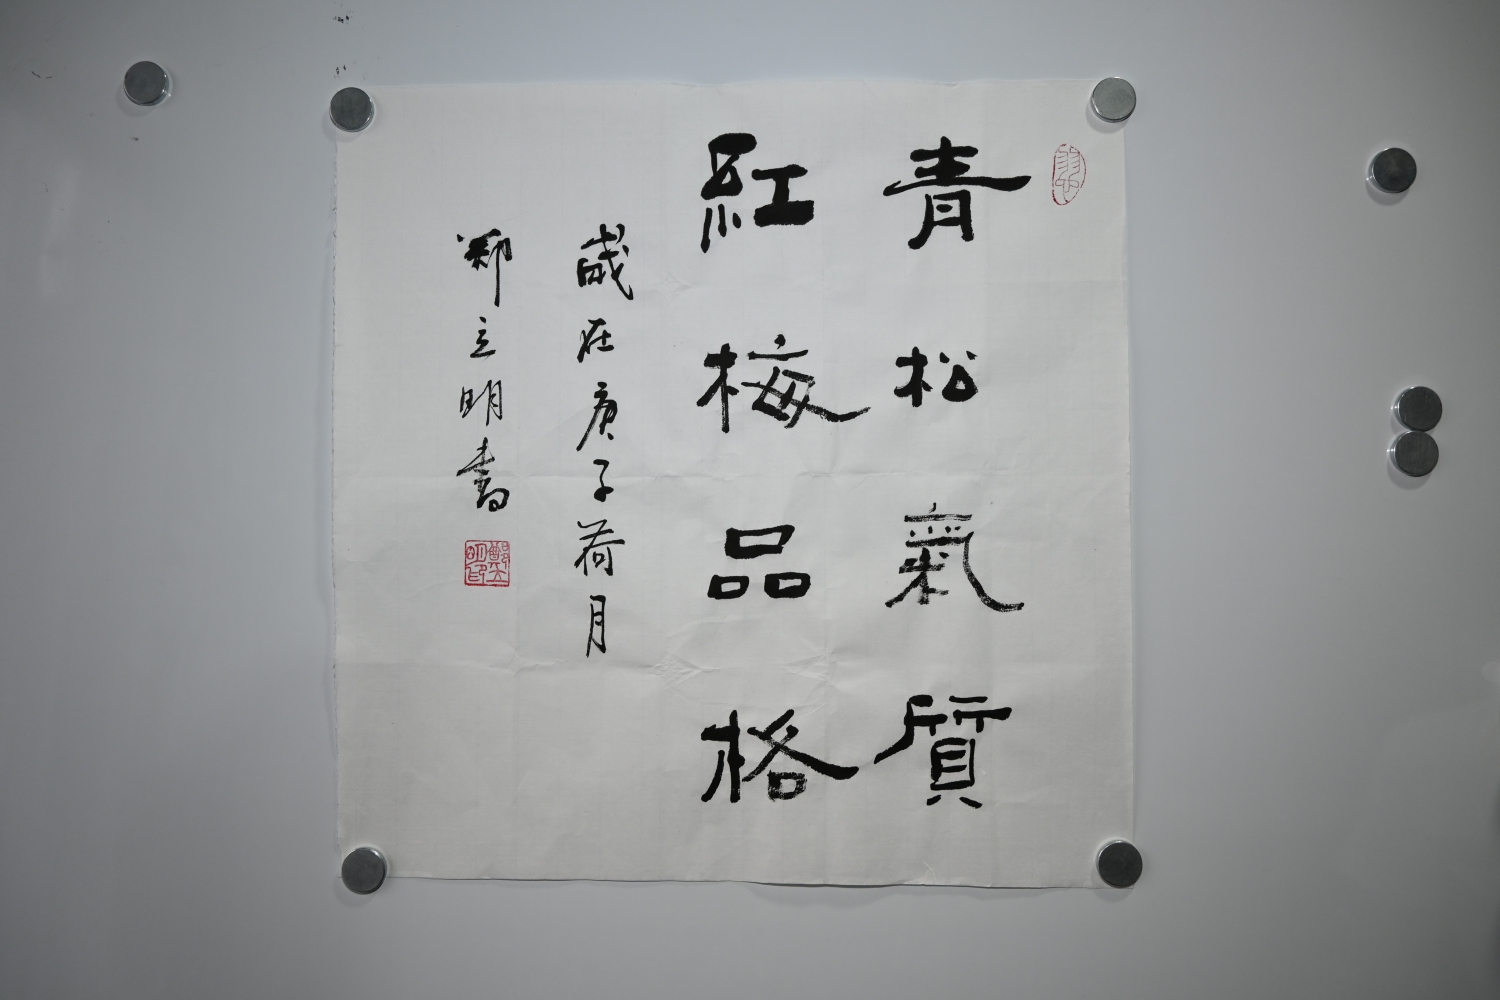 青松氣質
紅梅品格
歲在庚子荷月
鄭立明書
鄭立明印